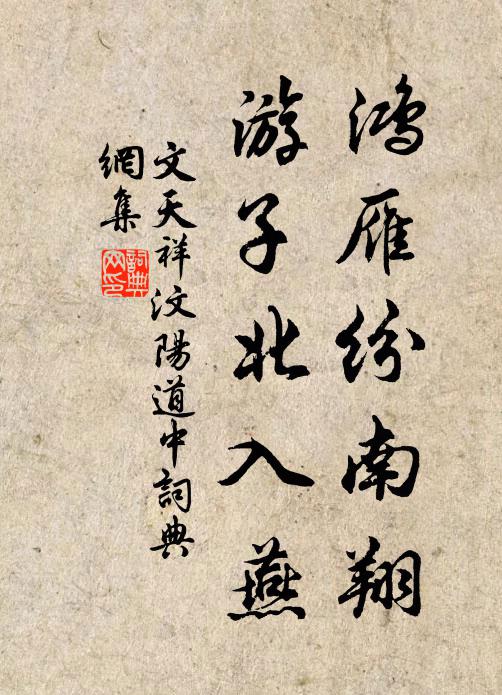 鸿雁纷南翔
游子北入燕
文天祥汶陽道中詞典
網集
詞典
网印